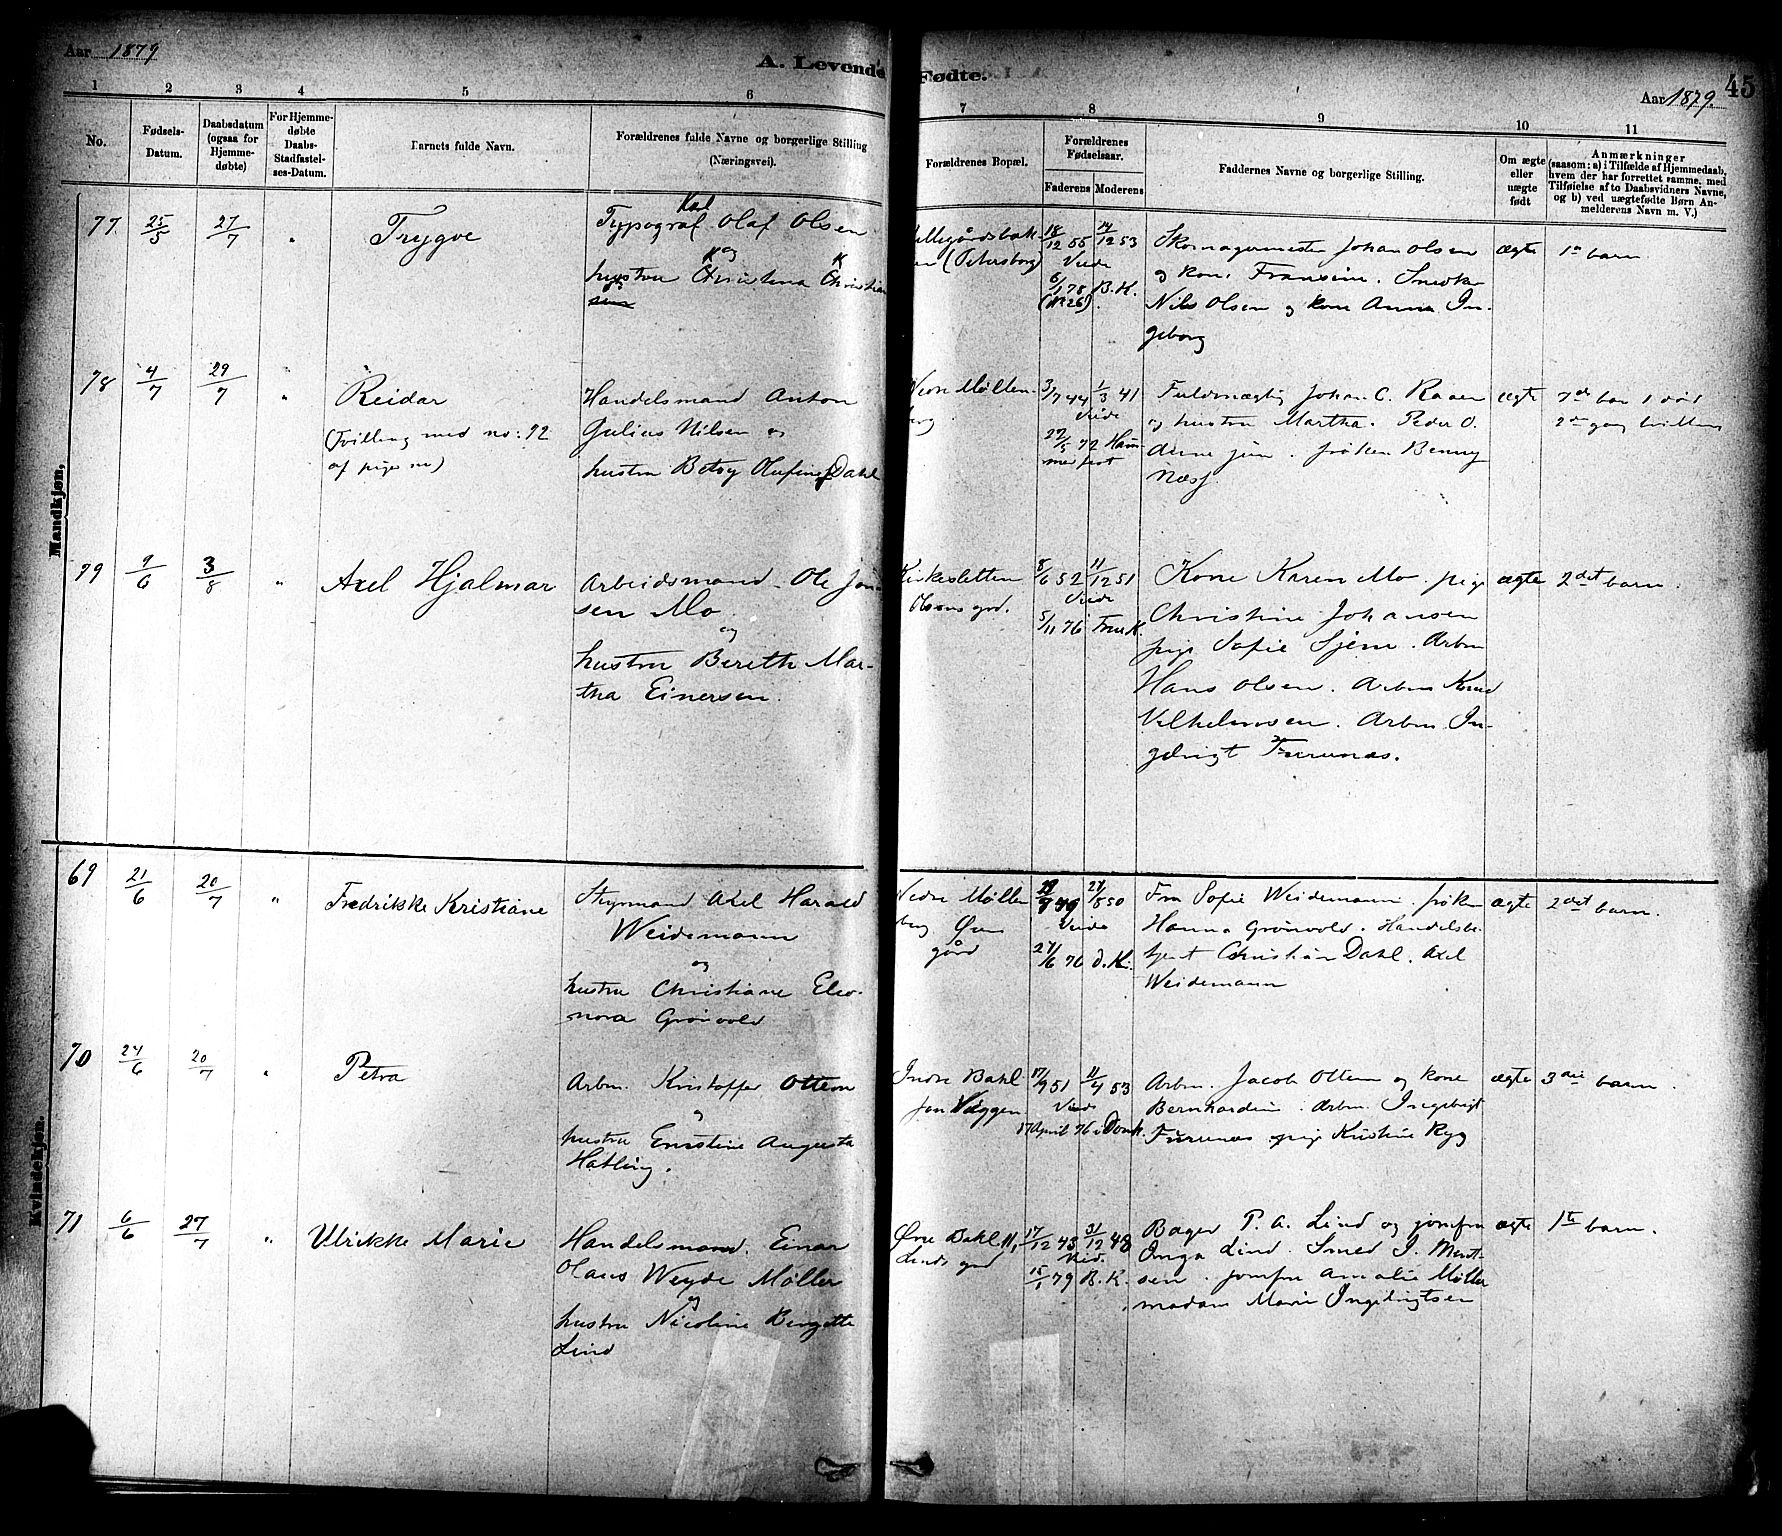 Aar 1879
A. Levende Fødte.
Aar 1879.
45
1 2 3 4 5 6 7 8 9 10 11
No.
Fødsels-Datum.
Daabsdatum (ogsaa for Hjemmedøbte)
For Hjemmedøbte Daabs-Stadfastelses-Datum.
Barnets fulde Navn.
Forældrenes fulde Navne og borgerlige Stilling
(Næringsvei).
Forældrenes Bopæl.
Forældrenes Fødselsaar.
Faderens Moderens
Faddernes Navne og borgerlige Stilling.
Om ægte eller uægte født
Anmærkninger
(saasom: a) i Tilfælde af Hjemmedaab,
hvem der har forrettet samme, med
Tilføielse af to Daabsvidners Navne,
og b) ved uægtefødte Børn An-
melderens Navn m. V.)
Mandkjøn.
77 25/5 27/7 " Trygve
Typograf Kal Olaf Olsen
og
hustru Christina Christian
sen
(Petersborg)
18/12 55 14/12 53
Viede
6/1 78 B.K.
(No 26)
Skomagermester Johan Olsen
og kone Fransine. Snedker
Nils Olsen og kone Anna In-
geborg
ægte
1e barn
78 4/7 29/7 " Reidar
(Tvilling med no: 72
af pige)
Handelsmand Anton
Julius Nilsen og
hustru Betsy Olufine Dahl
Nedre Møllen-
berg
3/7 44 1/3 41
Viede
27/5 72 Ham-
merfest
Fuldmægtig Johan C. Raaen
og hustru Martha. Peder O.
jun. frøken Benny
Næss
ægte
7de barn 1 død
2den gang tvilling
79 9/6 3/8 " Axel Hjalmar
Arbeidsmand Ole Jon-
sen Mo
og
hustru Bereth Mar-
tha Einersen.
Kirkesletten
Olsens grd.
8/6 52 11/12 51
Viede
5/11 76 Frue K.
Kone Karen Mo. pige
Christine Johansen
pige Sofie Sjem. Arbm
Hans Olsen. Arbm Knud
Vilhelmsen. Arbm In-
gebrigt Furunæs.
ægte
2det barn.
Kvindekjøn.
69 21/6 20/7 " Fredrikke Kristiane
Styrmand Axel Harald
Weidemann
og
hustru Christiane Eleo-
nora Grönvold
Nedre Møllen
berg
gård
49 50
Viede
27/6 76 D.K.
Fru Sofie Weidemann frøken
Hanna Grönvold. Handelsbe-
tjent Christian Dahl. Axel
Weidemann
ægte
2det barn.
70 24/6 20/7 " Petra
Arbm. Kristoffer Ottem
og
hustru Ernstine Augusta
Hatling.
Indre Bakl
Jon Væggen
17/9 51 11/4 53
Viede
17 April 76 i Domk.
Arbm. Jacob Ottem og kone
Bernhardin. Arbm. Ingebrigt
Furunæs pige Kristine Ryg
ægte
3die barn.
71 6/6 27/7 " Ulrikke Marie
Handelsmand. Einar
Olaus Weyde Møller
og
hustru Nicoline Bergitte
Lind
Øvre Bakl. 11,
Linds grd
17/12 43 31/12 48
Vied.
15/1 79 B.K.
Bager P. A. Lind og jomfru
Inga Lind. Smed I. Bernt-
sen. jomfru Amalie Møller
madam Marie Ingebrigtsen
ægte
1te barn.